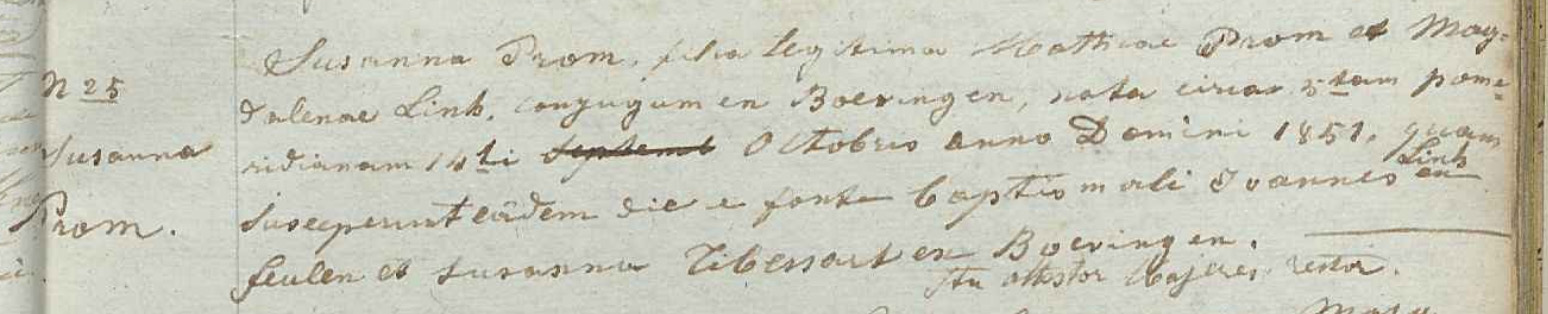 N 25
Susanna
Prom.
Susanna Prom, filia legitima Matthiae Prom et Mag=
dalenae Link, conjugum en Boevingen, nata circa 5tam pome=
ridianam 14ti Septemb Octobris anno Domini 1851, quam
susceperunt eâdem die e fonte baptismali Joannes Link en
feulen et Susanna Tibessart en Boevingen.
Ita attestor Majeres rector.